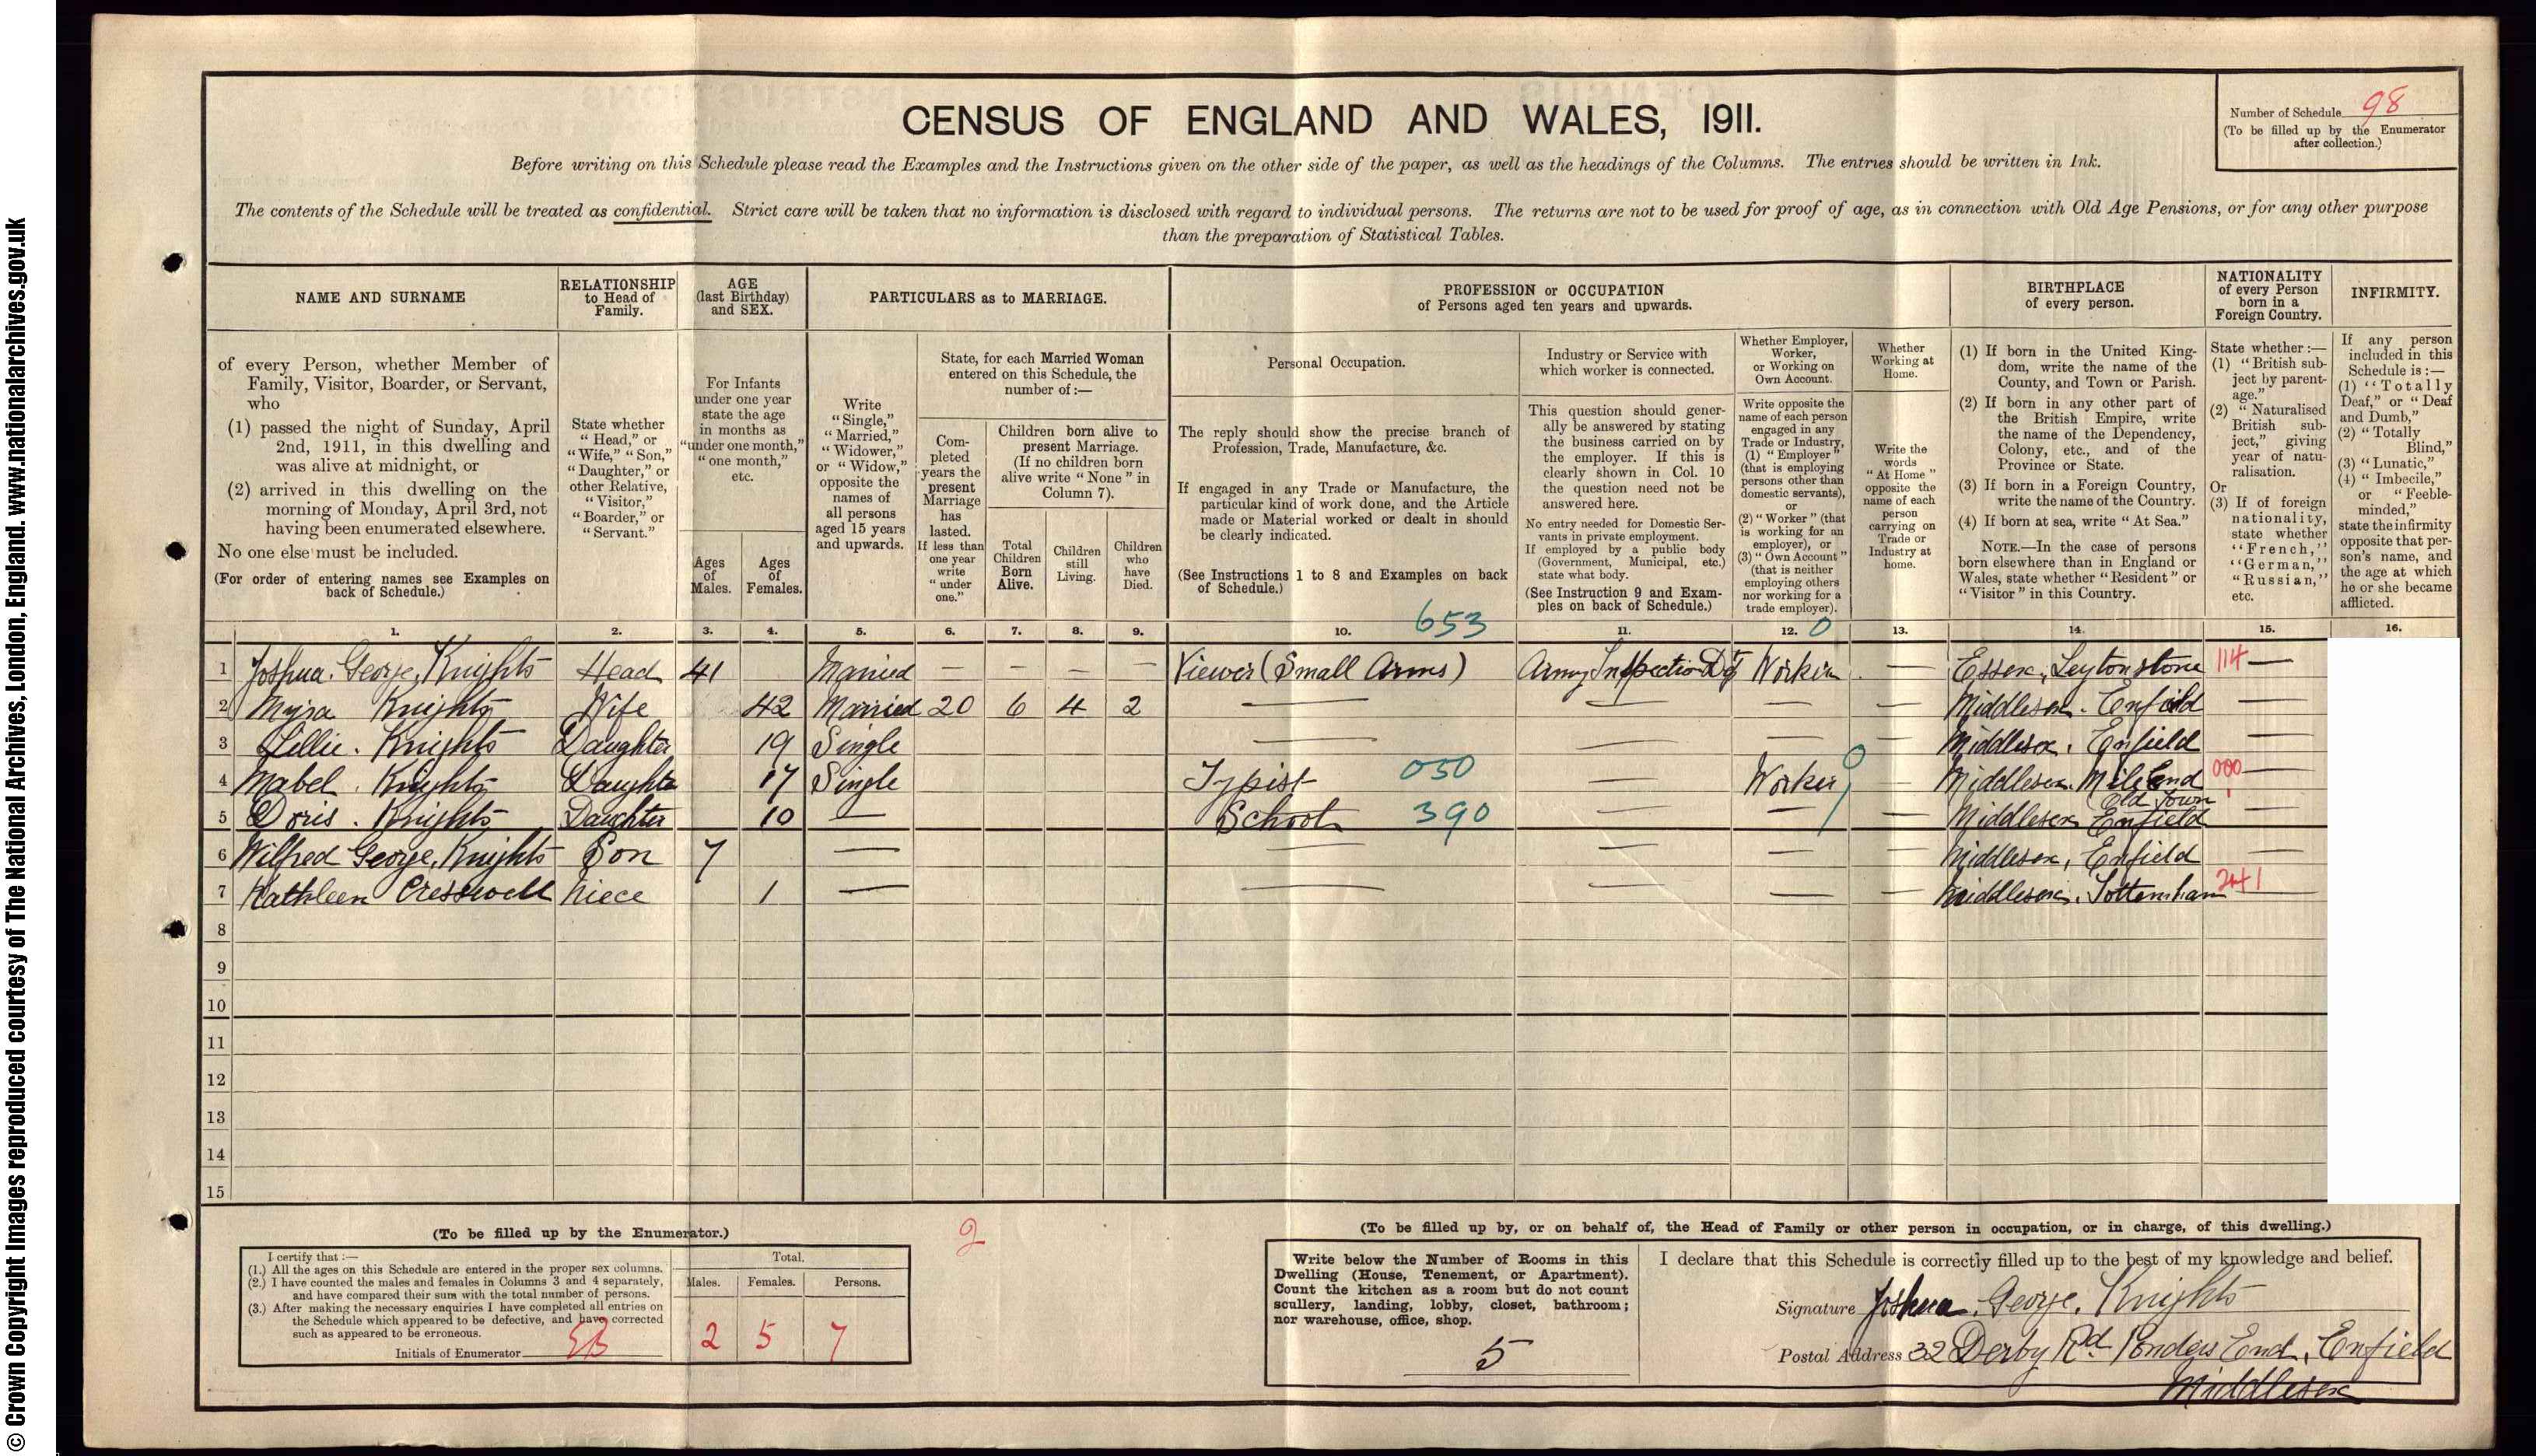 © Crown Copyright Images reproduced courtesy of The National Archives, London, England. www.nationalarchives.gov.uk
CENSUS OF ENGLAND AND WALES, 1911.
Number of Schedule 98
(To be filled up by the Enumerator
after collection.)
Before writing on this Schedule please read the Examples and the Instructions given on the other side of the paper, as well as the headings of the Columns. The entries should be written in Ink.
The contents of the Schedule will be treated as confidential. Strict care will be taken that no information is disclosed with regard to individual persons. The returns are not to be used for proof of age, as in connection with Old Age Pensions, or for any other purpose
than the preparation of Statistical Tables.
NAME AND SURNAME
of every Person, whether Member of
Family, Visitor, Boarder, or Servant,
who
(1) passed the night of Sunday, April
2nd, 1911, in this dwelling and
was alive at midnight, or
(2) arrived in this dwelling on the
morning of Monday, April 3rd, not
having been enumerated elsewhere.
No one else must be included.
(For order of entering names see Examples on
back of Schedule.)
RELATIONSHIP
to Head of
Family.
State whether
"Head," or
"Wife," "Son,"
"Daughter," or
other Relative,
"Visitor,"
"Boarder," or
"Servant."
AGE
(last Birthday)
and SEX.
For Infants
under one year
state the age
in months as
"under one month,"
"one month,"
etc.
Ages
of
Males.
Ages
of
Females.
PARTICULARS as to MARRIAGE.
Write
"Single,"
"Married,"
"Widower,"
or "Widow,"
opposite the
names of
all persons
aged 15 years
and upwards.
State, for each Married Woman
entered on this Schedule, the
number of:—
Com-
pleted
years the
present
Marriage
has
lasted.
If less than
one year
write
"under
one."
Children born alive to
present Marriage.
(If no children born
alive write "None" in
Column 7).
Total
Children
Born
Alive.
Children
still
Living.
Children
who
have
Died.
PROFESSION or OCCUPATION
of Persons aged ten years and upwards.
Personal Occupation.
The reply should show the precise branch of
Profession, Trade, Manufacture, &c.
If engaged in any Trade or Manufacture, the
particular kind of work done, and the Article
made or Material worked or dealt in should
be clearly indicated.
(See Instructions 1 to 8 and Examples on back
of Schedule.)
Industry or Service with
which worker is connected.
This question should gener-
ally be answered by stating
the business carried on by
the employer. If this is
clearly shown in Col. 10
the question need not be
answered here.
No entry needed for Domestic Ser-
vants in private employment.
If employed by a public body
(Government, Municipal, etc.)
state what body.
(See Instruction 9 and Exam-
ples on back of Schedule.)
Whether Employer,
Worker,
or Working on
Own Account.
Write opposite the
name of each person
engaged in any
Trade or Industry,
(1) "Employer"
(that is employing
persons other than
domestic servants),
or
(2) "Worker" (that
is working for an
employer), or
(3) "Own Account"
(that is neither
employing others
nor working for a
trade employer).
Whether
Working at
Home.
Write the
words
"At Home"
opposite the
name of each
person
carrying on
Trade or
Industry at
home.
BIRTHPLACE
of every person.
(1) If born in the United King-
dom, write the name of the
County, and Town or Parish.
(2) If born in any other part of
the British Empire, write
the name of the Dependency,
Colony, etc., and of the
Province or State.
(3) If born in a Foreign Country,
write the name of the Country.
(4) If born at sea, write "At Sea."
NOTE.—In the case of persons
born elsewhere than in England or
Wales, state whether "Resident" or
"Visitor" in this Country.
NATIONALITY
of every Person
born in a
Foreign Country.
State whether:—
(1) "British sub-
ject by parent-
age."
(2) "Naturalised
British sub-
ject," giving
year of natu-
ralisation.
Or
(3) If of foreign
nationality,
state whether
"French,"
"German,"
"Russian,"
etc.
INFIRMITY.
If any person
included in this
Schedule is:—
(1) "Totally
Deaf," or "Deaf
and Dumb,"
(2) "Totally
Blind,"
(3) "Lunatic,"
(4) "Imbecile,"
or "Feeble-
minded,"
state the infirmity
opposite that per-
son's name, and
the age at which
he or she became
afflicted.
1. 2. 3. 4. 5. 6. 7. 8. 9. 10. 653 11. 12. 0 13. 14. 15. 16.
1 Joshua George, Knights Head 41 Married — — — — Viewer (Small Arms) Army Inspection Dpt Worker — Essex, Leytonstone 114 —
2 Myra Knights Wife 42 Married 20 6 4 2 — — — — Middlesex. Enfield —
3 Lillie. Knights Daughter 19 Single — — — — Middlesex, Enfield —
4 Mabel. Knights Daughter 17 Single Typist 050 — Worker 9 — Middlesex. Mile End 000 —
Old Town
5 Doris. Knights Daughter 10 — School 390 — — — Middlesex Enfield —
6 Wilfred George, Knights Son 7 — — — — — Middlesex, Enfield —
7 Kathleen Cresswell Niece 1 — — — — — Middlesex, Tottenham 241 —
8
9
10
11
12
13
14
15
(To be filled up by the Enumerator.)
I certify that:—
(1.) All the ages on this Schedule are entered in the proper sex columns.
(2.) I have counted the males and females in Columns 3 and 4 separately,
and have compared their sum with the total number of persons.
(3.) After making the necessary enquiries I have completed all entries on
the Schedule which appeared to be defective, and have corrected
such as appeared to be erroneous.
Initials of Enumerator EB
Total.
Males. Females. Persons.
2 5 7
2
(To be filled up by, or on behalf of, the Head of Family or other person in occupation, or in charge, of this dwelling.)
Write below the Number of Rooms in this
Dwelling (House, Tenement, or Apartment).
Count the kitchen as a room but do not count
scullery, landing, lobby, closet, bathroom;
nor warehouse, office, shop.
5
I declare that this Schedule is correctly filled up to the best of my knowledge and belief.
Signature Joshua. George. Knights
Postal Address 32 Derby Rd. Ponders End, Enfield
Middlesex